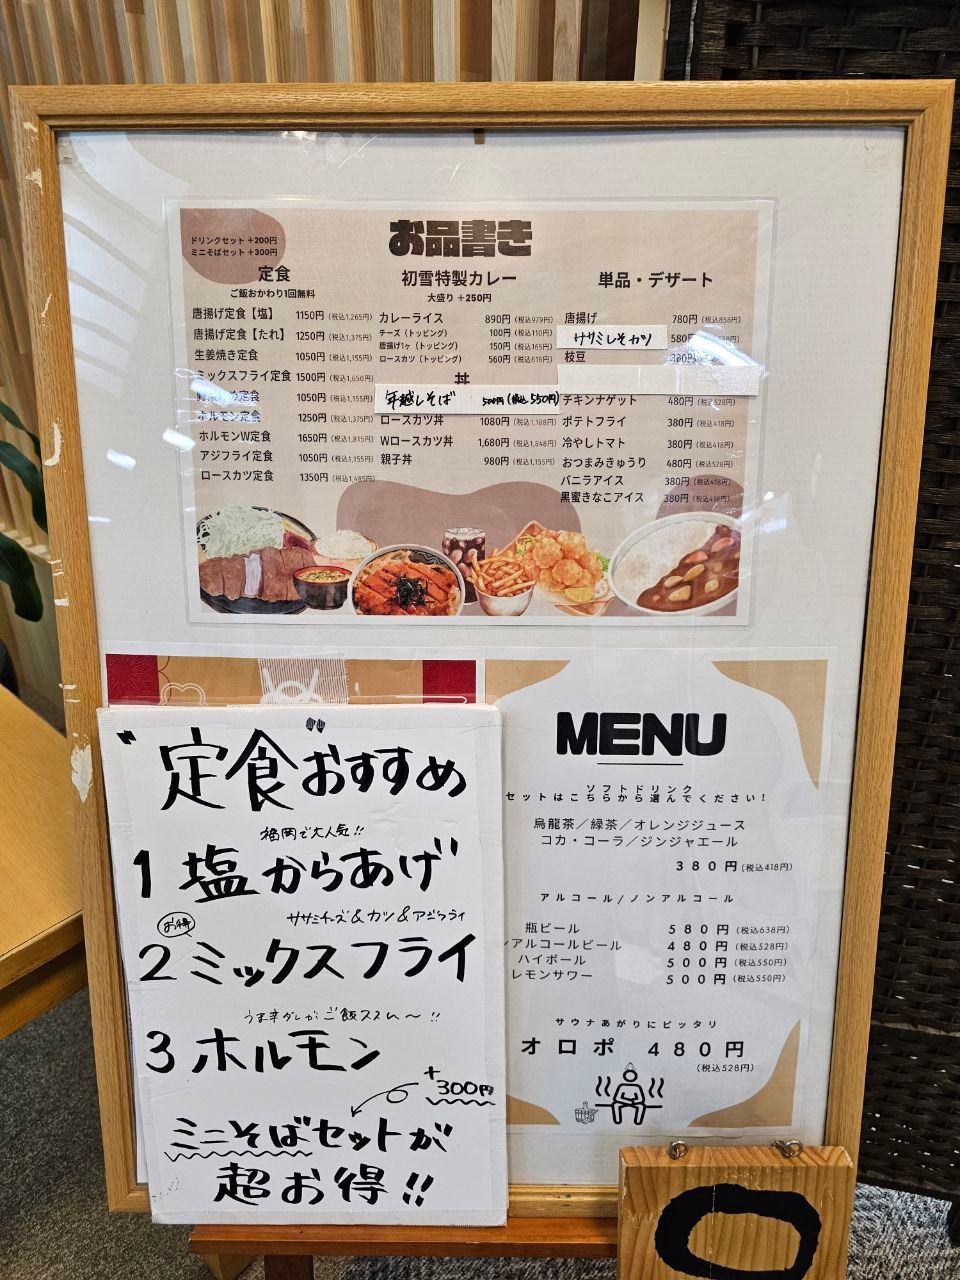 お品書き
ドリンクセット +200円
ミニそばセット +300円
定食
ご飯おかわり1回無料
唐揚げ定食【塩】 1150円 (税込1,265円)
唐揚げ定食【たれ】 1250円 (税込1,375円)
生姜焼き定食 1050円 (税込1,155円)
ミックスフライ定食 1500円 (税込1,650円)
定食 1050円 (税込1,155円)
ホルモン定食 1250円 (税込1,375円)
ホルモンW定食 1650円 (税込1,815円)
アジフライ定食 1050円 (税込1,155円)
ロースカツ定食 1350円 (税込1,485円)
初雪特製カレー
大盛り +250円
カレーライス 890円 (税込979円)
チーズ（トッピング） 100円 (税込110円)
唐揚げ1ヶ（トッピング） 150円 (税込165円)
ロースカツ（トッピング） 560円 (税込616円)
丼
年越しそば 500円 (税込550円)
ロースカツ丼 1080円 (税込1,188円)
Wロースカツ丼 1,680円 (税込1,848円)
親子丼 980円 (税込1,155円)
単品・デザート
唐揚げ 780円 (税込858円)
ササミしそカツ 580円
枝豆 380円
チキンナゲット 480円 (税込528円)
ポテトフライ 380円 (税込418円)
冷やしトマト 380円 (税込418円)
おつまみきゅうり 480円 (税込528円)
バニラアイス 380円 (税込418円)
黒蜜きなこアイス 380円 (税込418円)
"定食"おすすめ
福岡で大人気!!
1 塩からあげ
お得
ササミチーズ&カツ&アジフライ
2 ミックスフライ
うま辛ダレがご飯ススム〜!!
3 ホルモン
+300円
ミニそばセットが
超お得!!
MENU
ソフトドリンク
セットはこちらから選んでください！
烏龍茶／緑茶／オレンジジュース
コカ・コーラ／ジンジャエール
380円 (税込418円)
アルコール/ノンアルコール
瓶ビール 580円 (税込638円)
アルコールビール 480円 (税込528円)
ハイボール 500円 (税込550円)
レモンサワー 500円 (税込550円)
サウナあがりにピッタリ
オロポ 480円
(税込528円)